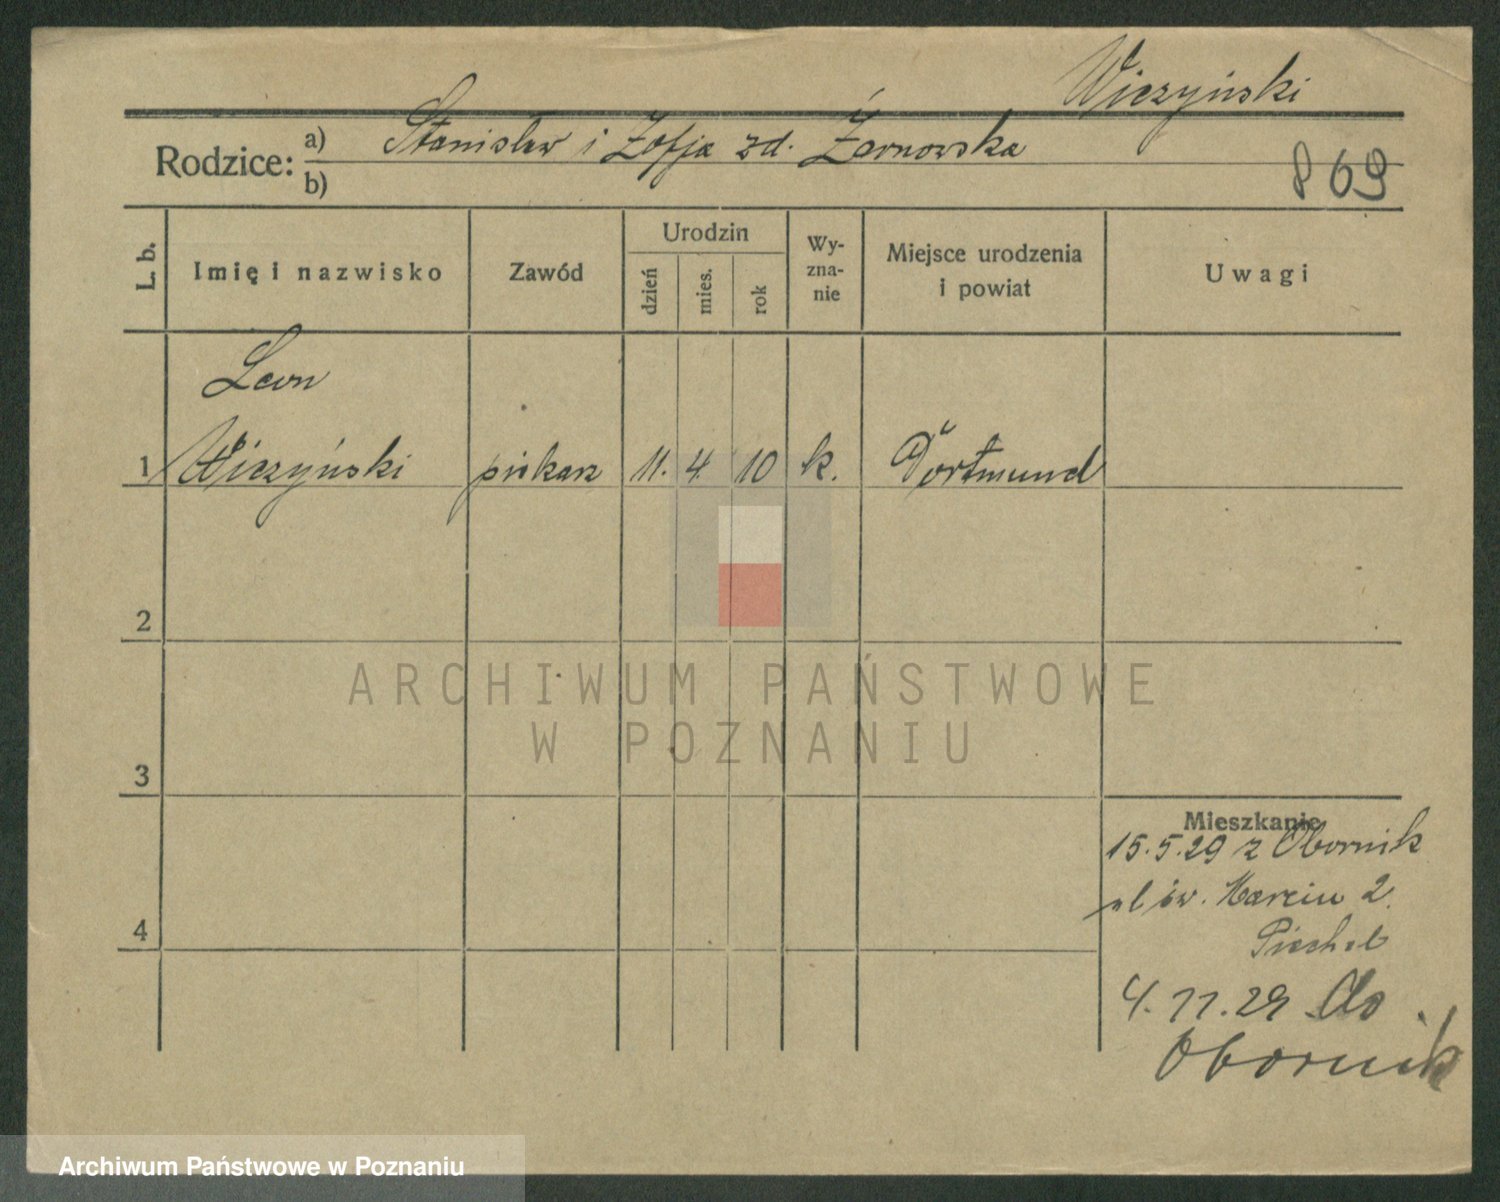 Wiczyński
Rodzice: a) Stanisław i Zofja zd. Żarnowska
b)
869
L. b.
Imię i nazwisko
Zawód
Urodzin
dzień
mies.
rok
Wy-
zna-
nie
Miejsce urodzenia
i powiat
Uwagi
Leon
1 Wiczyński piekarz 11. 4. 10 k. Dortmund
2
3
4
Mieszkanie
15.5.29 z Obornik
ul św. Marcin 2.
4.11.29 do
Obornik
ARCHIWUM PAŃSTWOWE
W POZNANIU
Archiwum Państwowe w Poznaniu